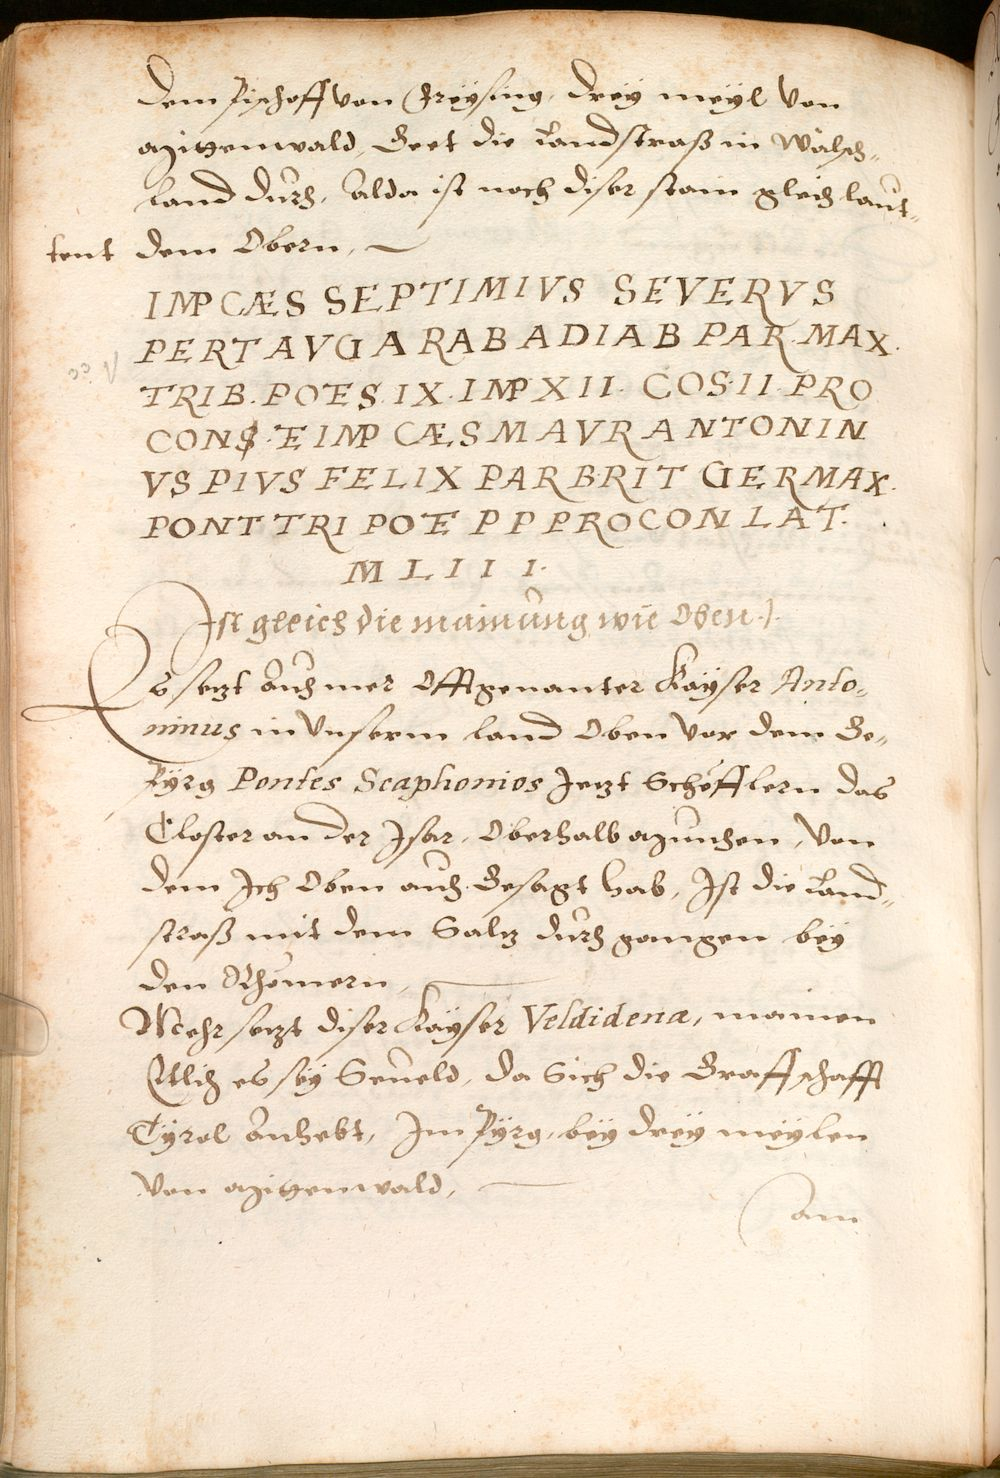 dem Pischoff von Freÿsing, dreÿ meÿl von
Mittenwald, Geet die Landstraß in Wälsch„
land durch, Alda ist noch diser stain gleich laut„
tent dem Obern,
IMP CÆS SEPTIMIVS SEVERVS
PERT AVG ARAB ADIAB PAR MAX.
TRIB. POTES. IX. IMP XII. COS. II. PRO
CONS. ET IMP CÆS M AVR ANTONIN
VS PIVS FELIX PAR BRIT GER MAX.
PONT TRI POTE P P PROCON LAT.
M L I I I.
Ist gleich die mainung wie Oben.
Es setzt Auch mer Offtgenanter Kaÿser Anto„
ninus in Vnserm land Oben vor dem Ge„
Pürg Pontes Scaphonios Jetzt Schefftlern das
Closter an der Jsar, Oberhalb München, von
dem Ich Oben auch Gesagt hab, Ist die Land„
straß mit dem Saltz durch gangen beÿ
den Rhömern,
Mehr setzt diser Kaÿser Veldidenæ, mainen
Etlich es seÿ Seueld, da Sich die Graffschafft
Tÿrol Anhebt, Im Pÿrg, beÿ dreÿ meÿlen
von Mittenwald,
am